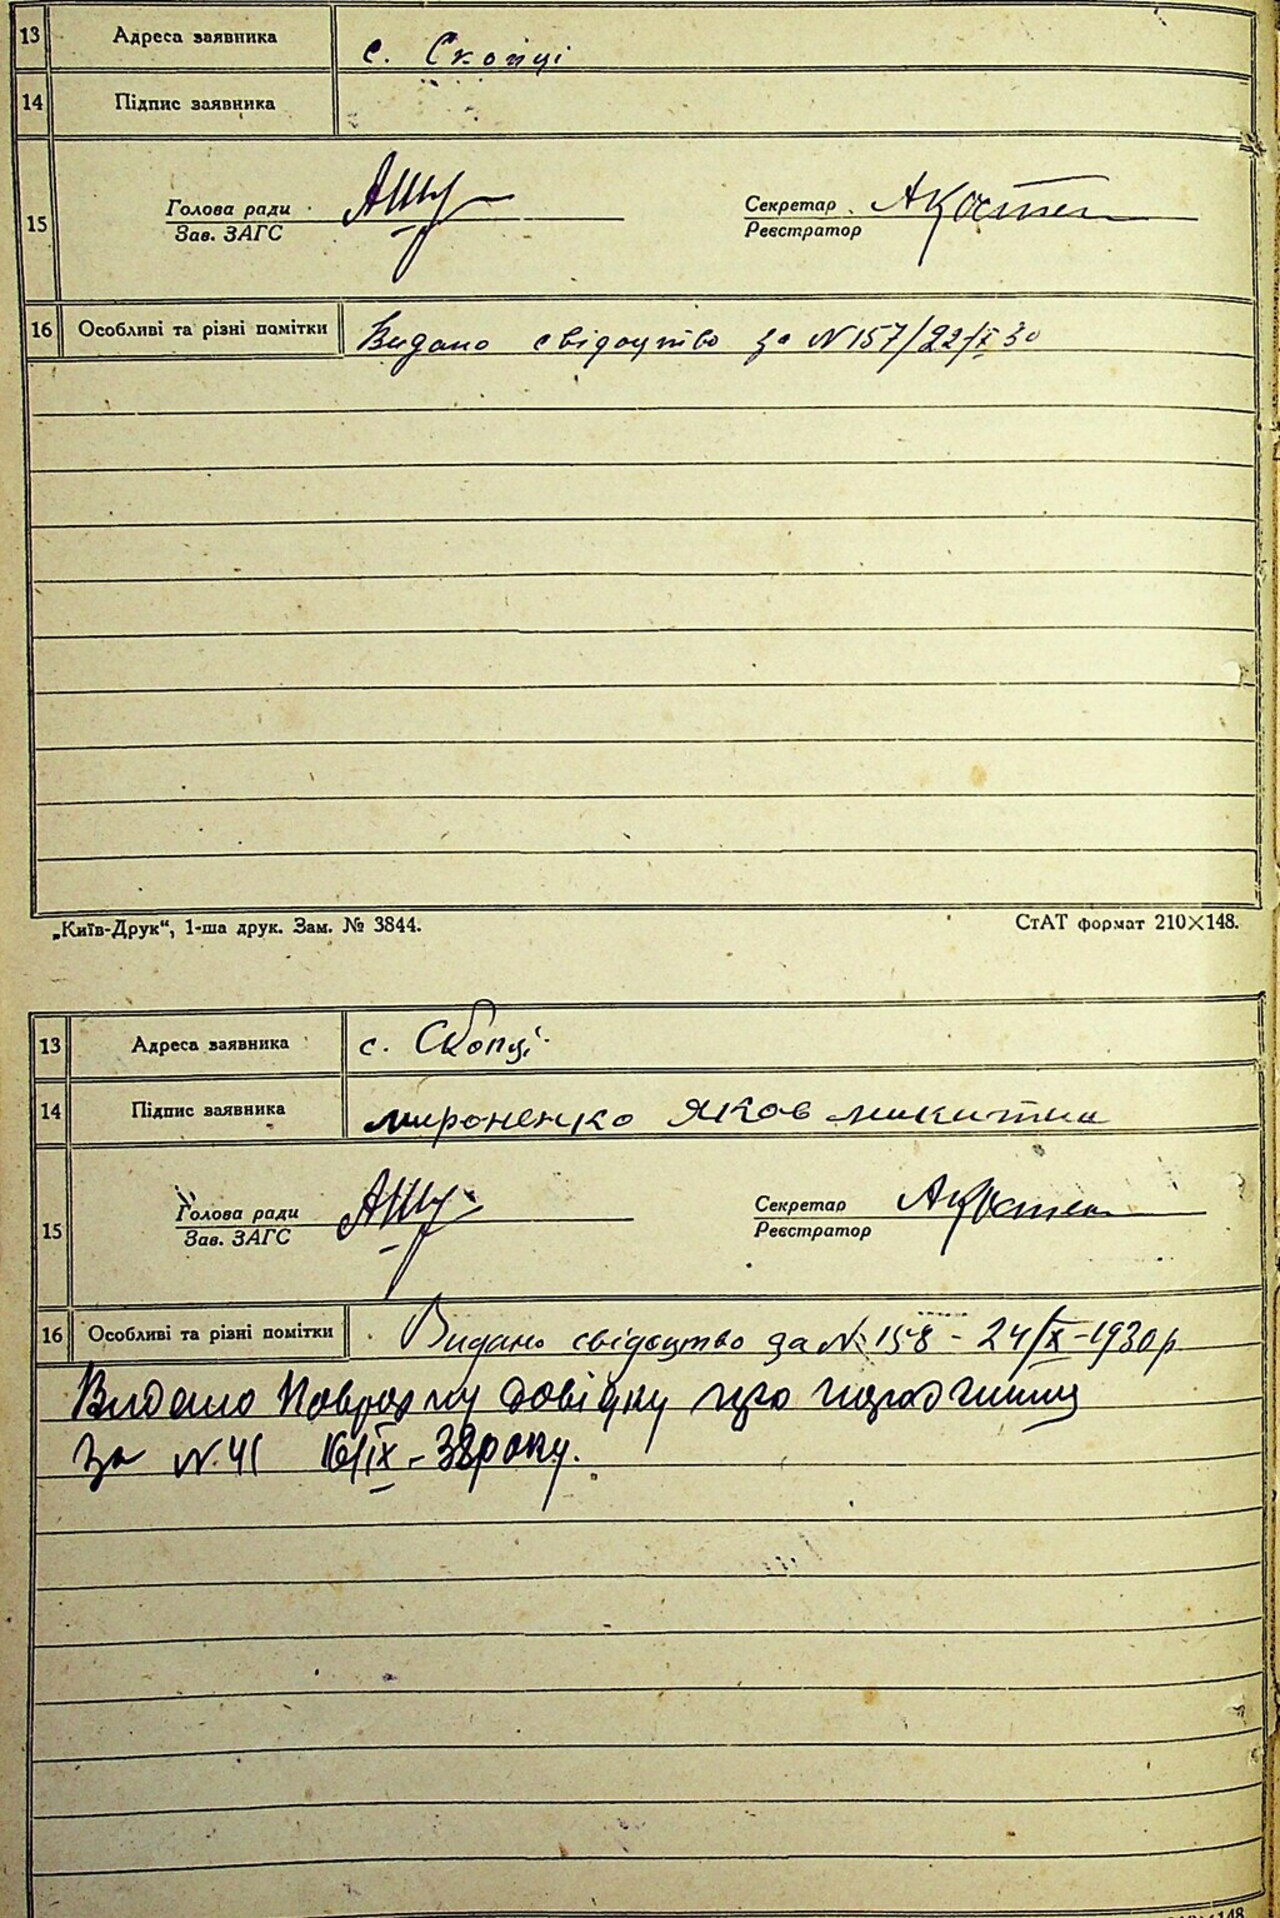 13 Адреса заявника с. Скопці
14 Підпис заявника
15 Голова ради Секретар
Зав. ЗАГС Реєстратор
16 Особливі та різні помітки Видано свідоцтво за N 157/22/X 30
„Київ-Друк“, 1-ша друк. Зам. № 3844. СтАТ формат 210×148.
13 Адреса заявника с. Скопці
14 Підпис заявника мироненко яков микитив
15 Голова ради Секретар
Зав. ЗАГС Реєстратор
16 Особливі та різні помітки Видано свідоцтво за N 158 - 24/X-1930р
Видано довідку про
за N 41 16/IX - 38 року.
148